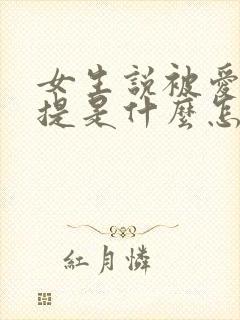 女生説被愛
提是什麼怎
紅月憐